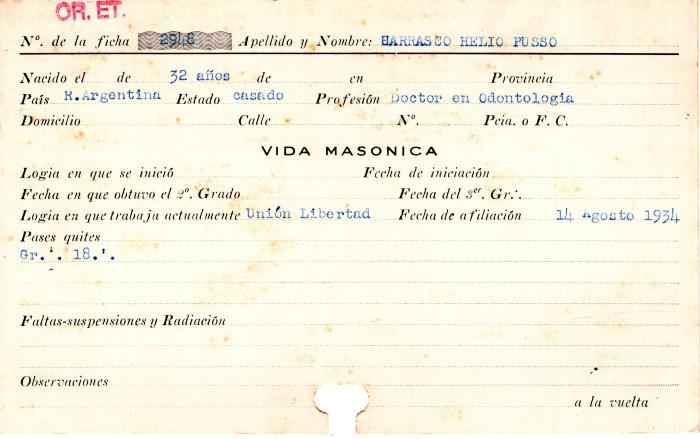 OR. ET.
Nº. de la ficha 2948 Apellido y Nombre: BARRASCO HELIO PUSSO
Nacido el de 32 años de en Provincia
País R.Argentina Estado casado Profesión Doctor en Odontologia
Domicilio Calle Nº. Pcia. o F. C.
VIDA MASONICA
Logia en que se inició Fecha de iniciación
Fecha en que obtuvo el 2º. Grado Fecha del 3er. Gr∴.
Logia en que trabaja actualmente Unión Libertad Fecha de afiliación 14 Agosto 1934
Pases quites
Gr.'. 18.'.
Faltas-suspensiones y Radiación
Observaciones
a la vuelta